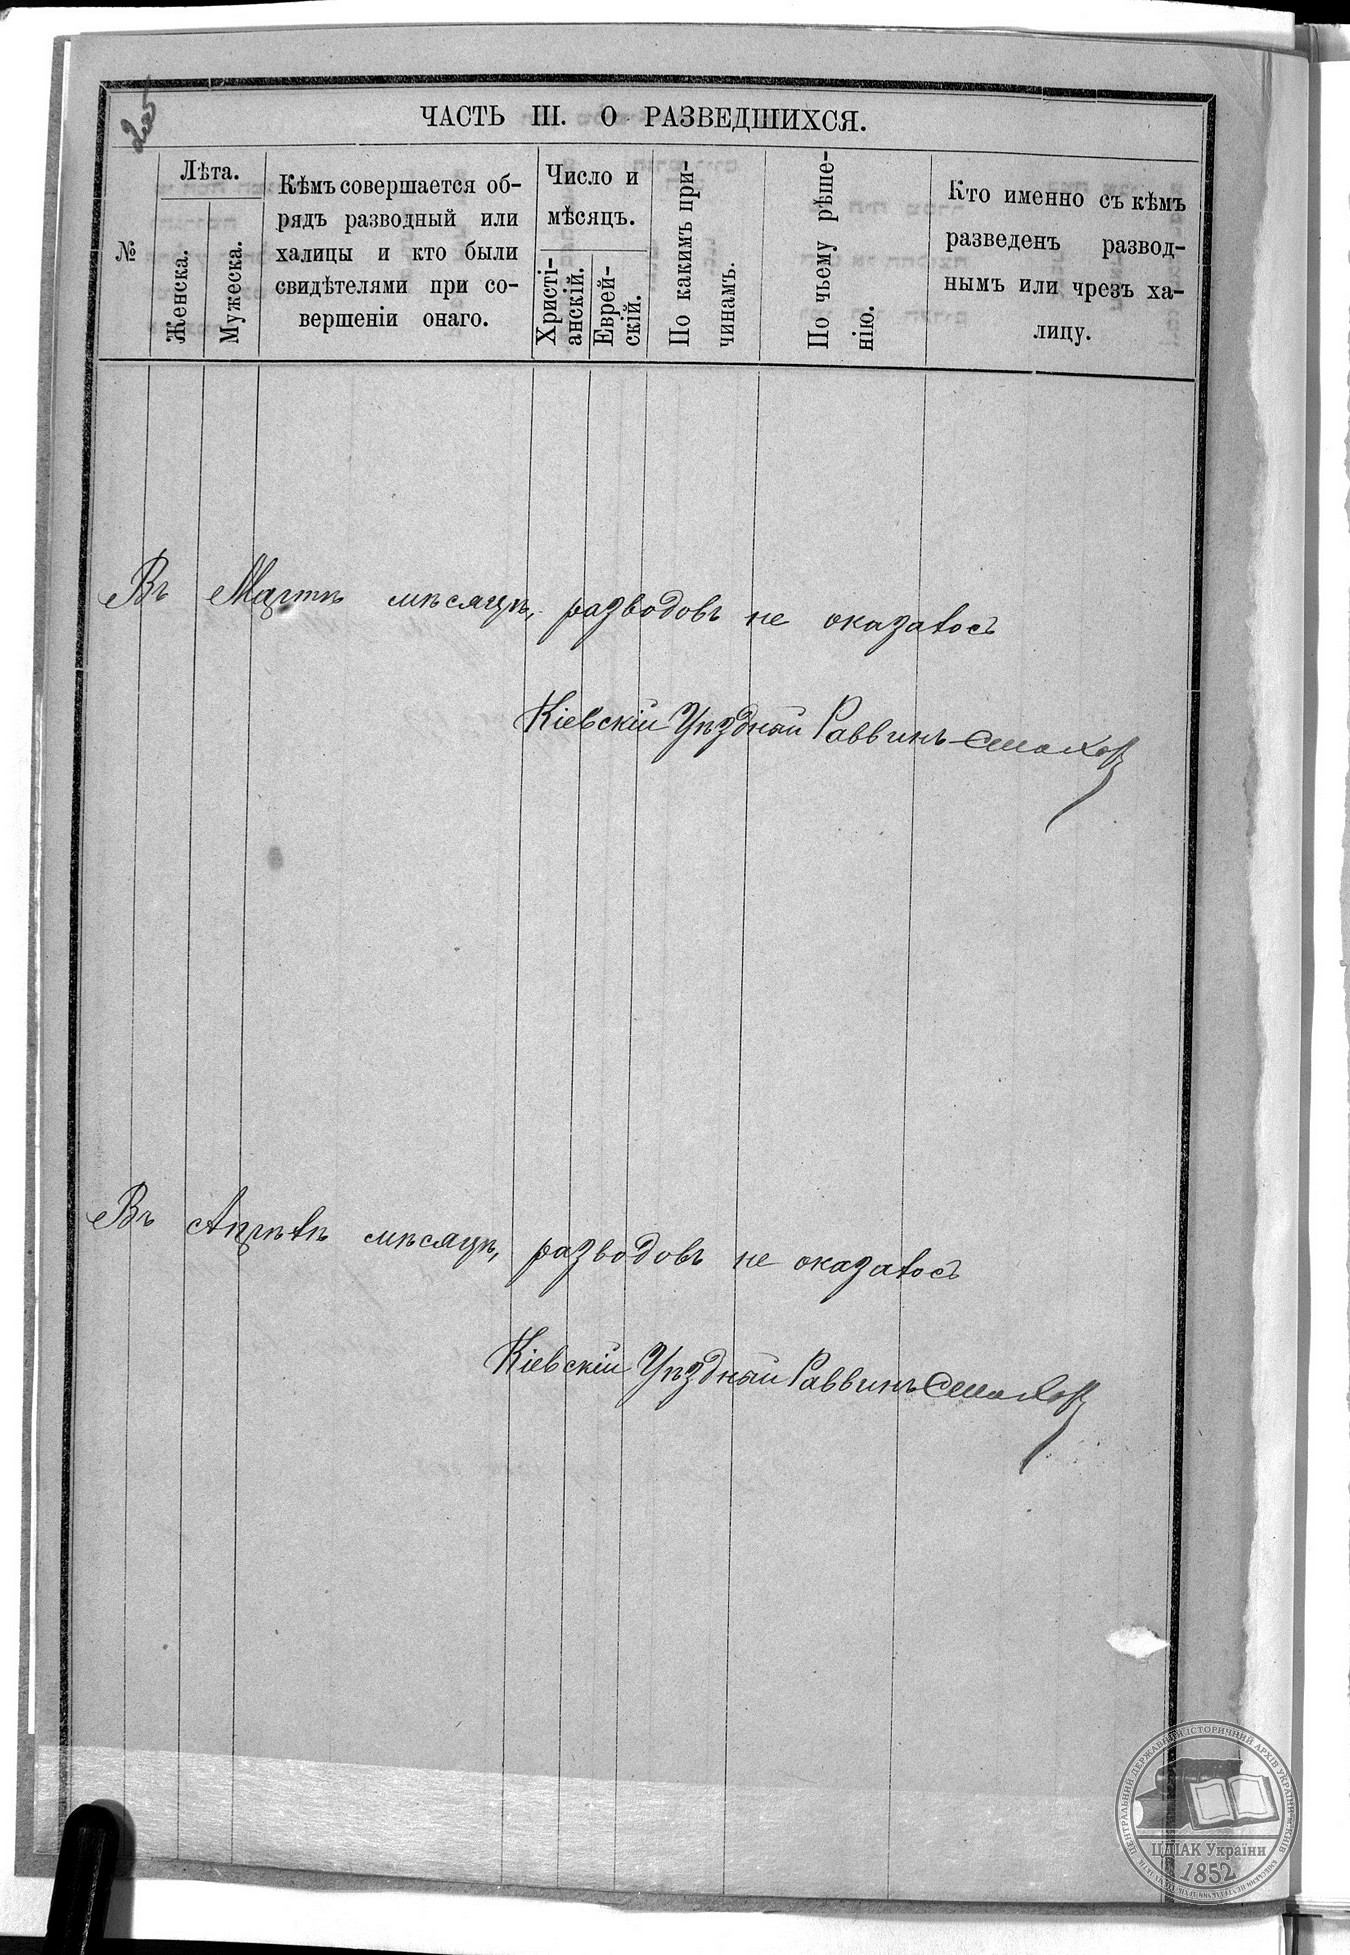 205
ЧАСТЬ III. О РАЗВЕДШИХСЯ.
№
Лѣта.
Женска.
Мужеска.
Кѣмъ совершается об-
рядъ разводный или
халицы и кто были
свидѣтелями при со-
вершеніи онаго.
Число и
мѣсяцъ.
Христі-
анскій.
Еврей-
скій.
По какимъ при-
чинамъ.
По чьему рѣше-
нію.
Кто именно съ кѣмъ
разведенъ развод-
нымъ или чрезъ ха-
лицу.
Въ Мартѣ мѣсяцѣ, разводовъ не оказалось
Кіевскій Уѣздный Раввинъ
Въ Апрѣлѣ мѣсяцѣ, разводовъ не оказалось
Кіевскій Уѣздный Раввинъ
ЦЕНТРАЛЬНИЙ ДЕРЖАВНИЙ ІСТОРИЧНИЙ АРХІВ УКРАЇНИ, М. КИЇВ
ЦДІАК України
1852